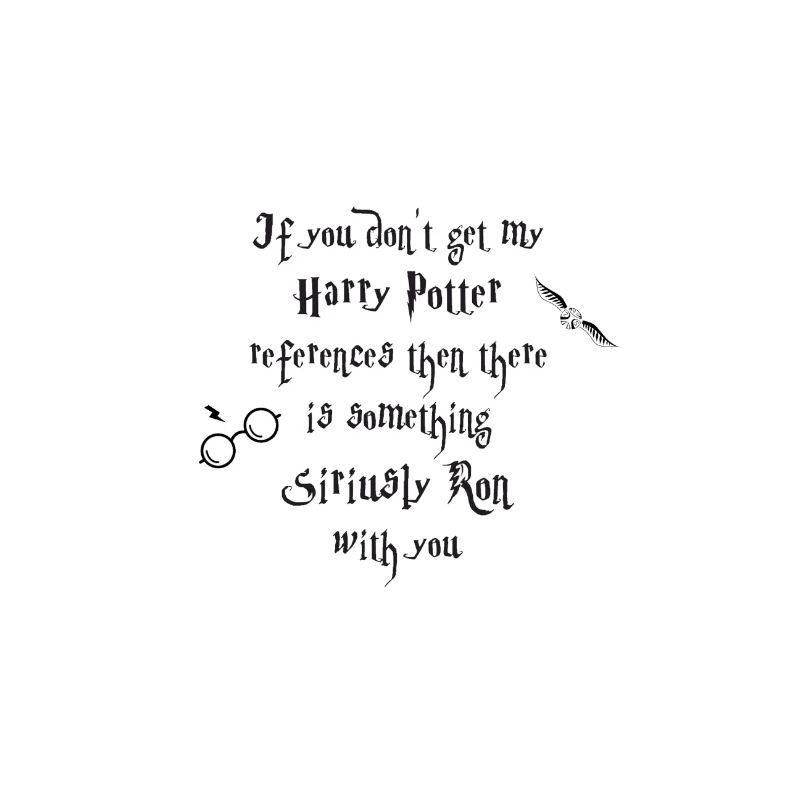 If you don't get my
Harry Potter
references then there
is something
Siriusly Ron
with you